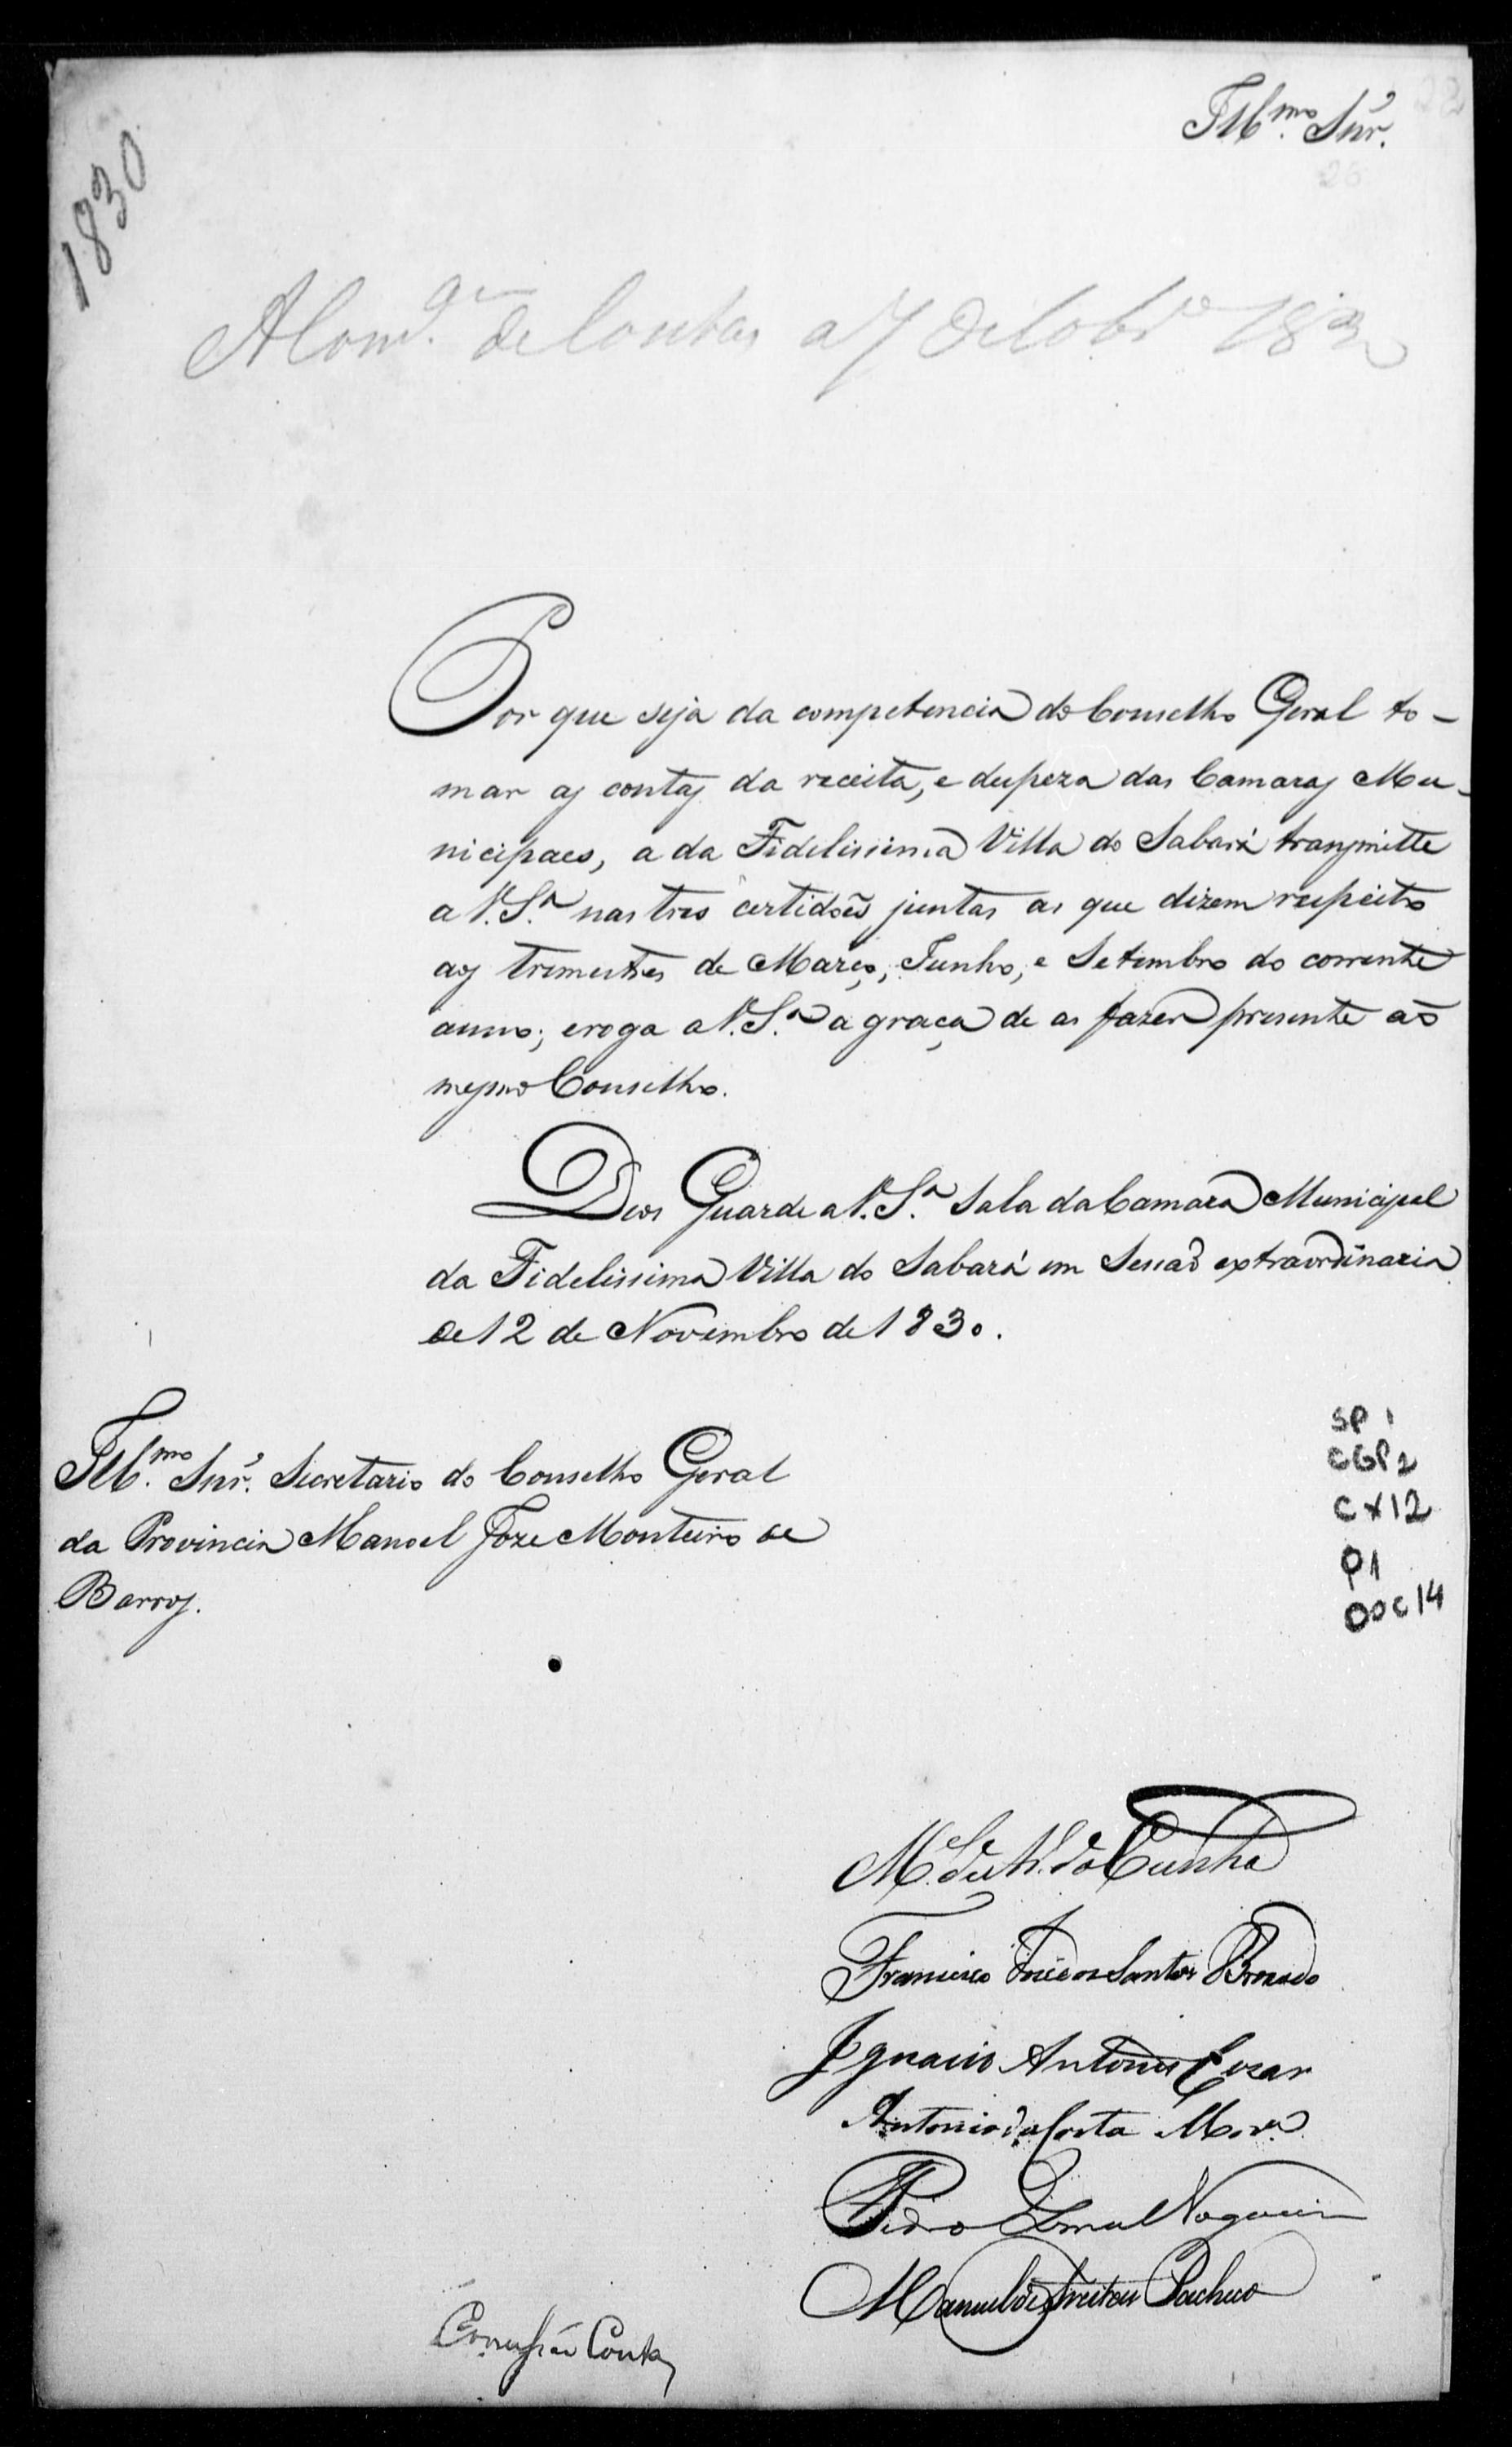 Illmo. Snr.
1830
A Com.am de Contas a 7 de
Por que seja da competencia do Conselho Geral to-
mar as contas da receita, e despeza das Camaras Mu-
nicipaes, a da Fidelissima Villa do Sabará transmitte
a V. S.a nas tres certidoẽs juntas as que dizem respeito
aos trimestres de Março, Junho, e Setembro do corrente
anno; e roga a V. S.a a graça de as fazer presente aõ
mesmo Conselho.
Deos Guarde a V. S.a Sala da Camara Municipal
da Fidelissima Villa do Sabará em Sessaõ extraordinaria
de 12 de Novembro de 1830.
Illmo. Snr. Secretario do Conselho Geral
da Provincia Manoel Joze Monteiro de
Barros.
SP 1
CGP2
CX12
P1
DOC 14
da Cunha
Francisco José dos Santos
Ignacio Antonio Cezar
Antonio da Costa Mor.a
Pedro Nogueira
Manuel de Freitas Pacheco
Contas